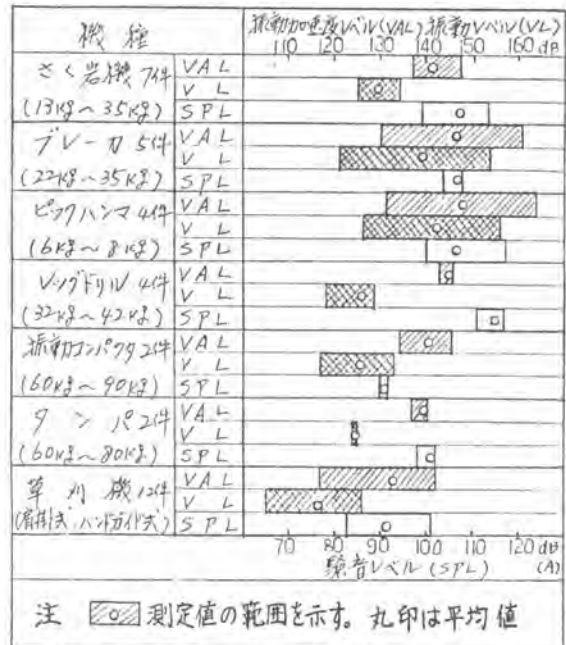 機種
振動加速度レベル(VAL) 振動レベル(VL)
110 120 130 140 150 160 dB
さく岩機 7件
(13kg~35kg)
VAL
VL
SPL
ブレーカ 5件
(22kg~35kg)
VAL
VL
SPL
ピックハンマ 4件
(6kg~8kg)
VAL
VL
SPL
レッグドリル 4件
(32kg~42kg)
VAL
VL
SPL
振動コンパクタ 2件
(60kg~90kg)
VAL
VL
SPL
タンパ 2件
(60kg~80kg)
VAL
VL
SPL
草刈機 12件
(肩掛式・ハンドガイド式)
VAL
VL
SPL
70 80 90 100 110 120 dB
騒音レベル(SPL) (A)
注 測定値の範囲を示す。丸印は平均値